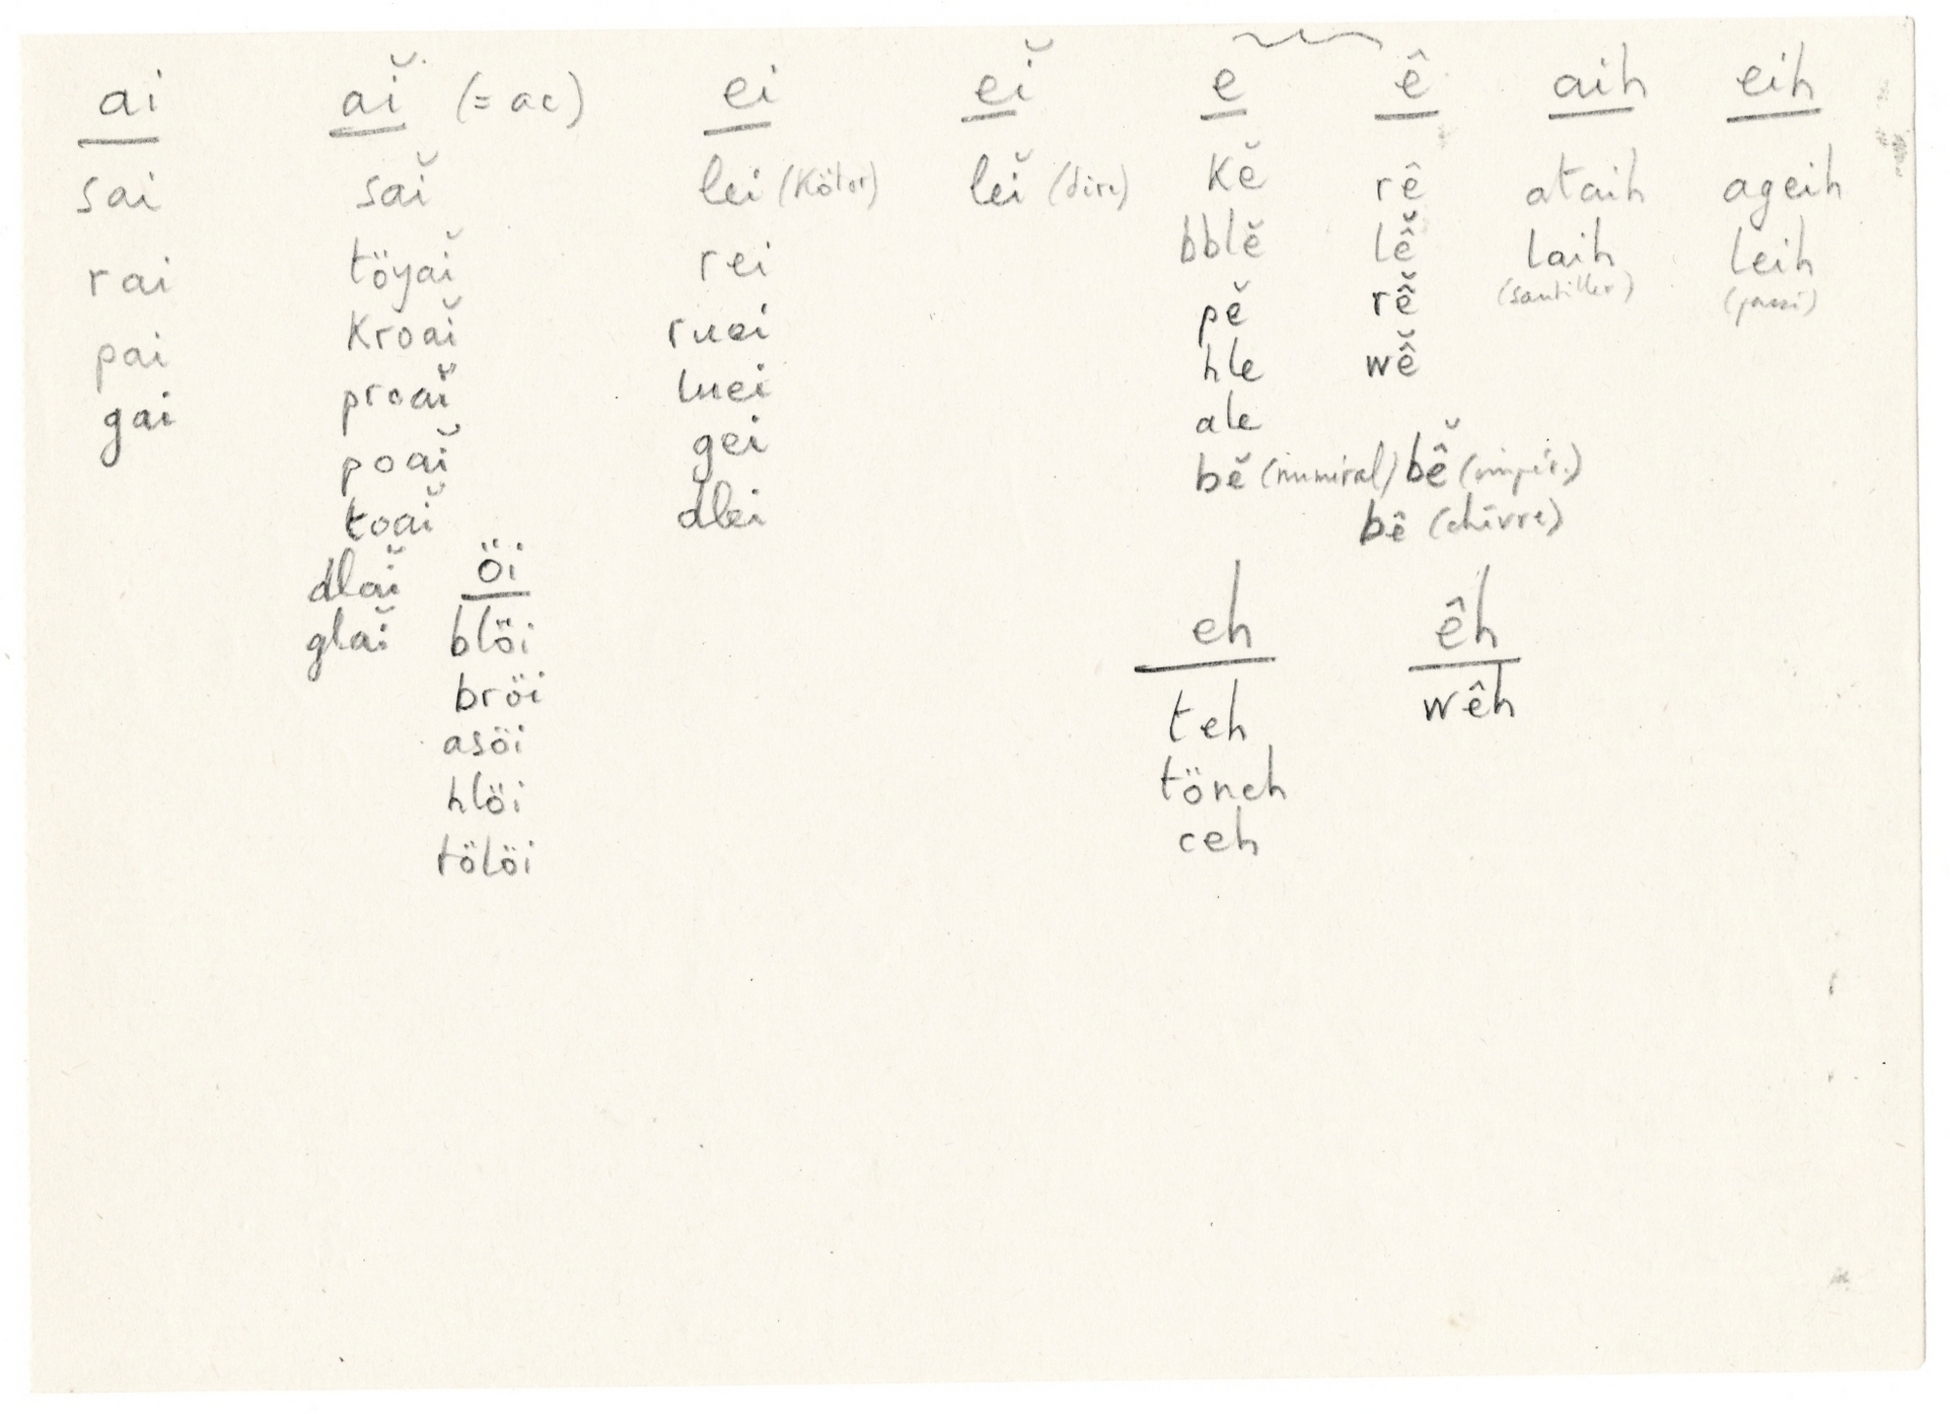 ai aĭ (= ac) ei eĭ e ê aih eih
sai saĭ lei (Kötor) leĭ (dire) kĕ rê ataih ageih
rai töyaĭ rei bblĕ lê̆ laih leih
(sautiller)
pai Kroaĭ ruei pĕ rê̆
gai proaĭ luei hle wê̆
poaĭ gei ale
toaĭ dlei bĕ (numéral) bê̆ (impér.)
bê (chèvre)
dlaĭ öi eh êh
glaĭ blöi teh wêh
bröi töneh
asöi ceh
hlöi
tölöi